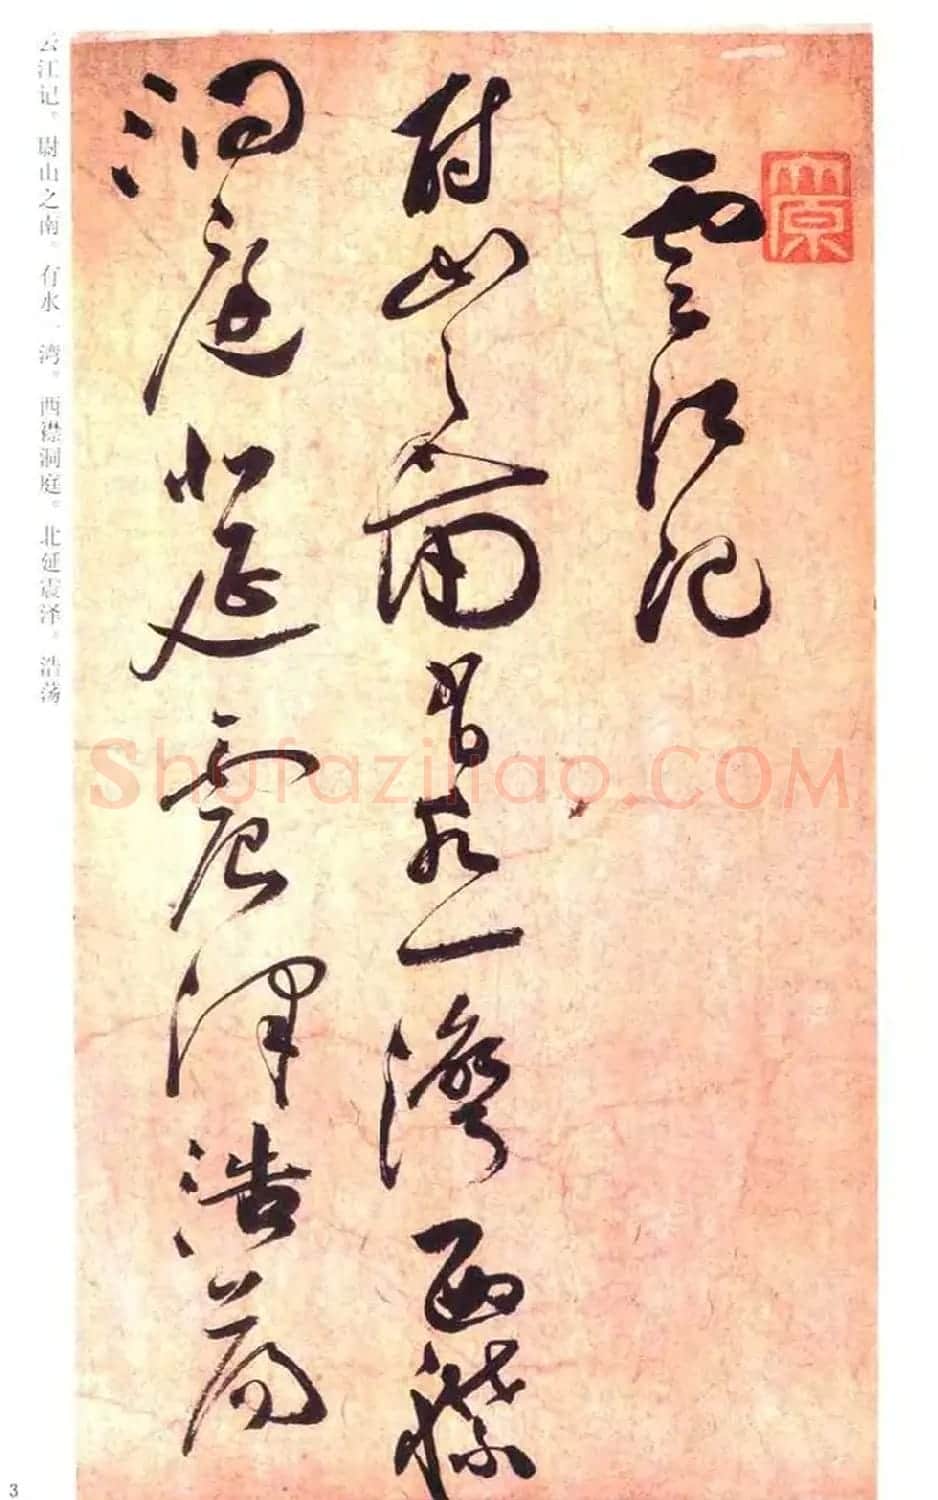 雲江記
尉山之南有水一灣西襟
洞庭北延震澤浩蕩
云江记。尉山之南。有水一湾。西襟洞庭。北延震泽。浩荡
Shufaziliao.COM
3